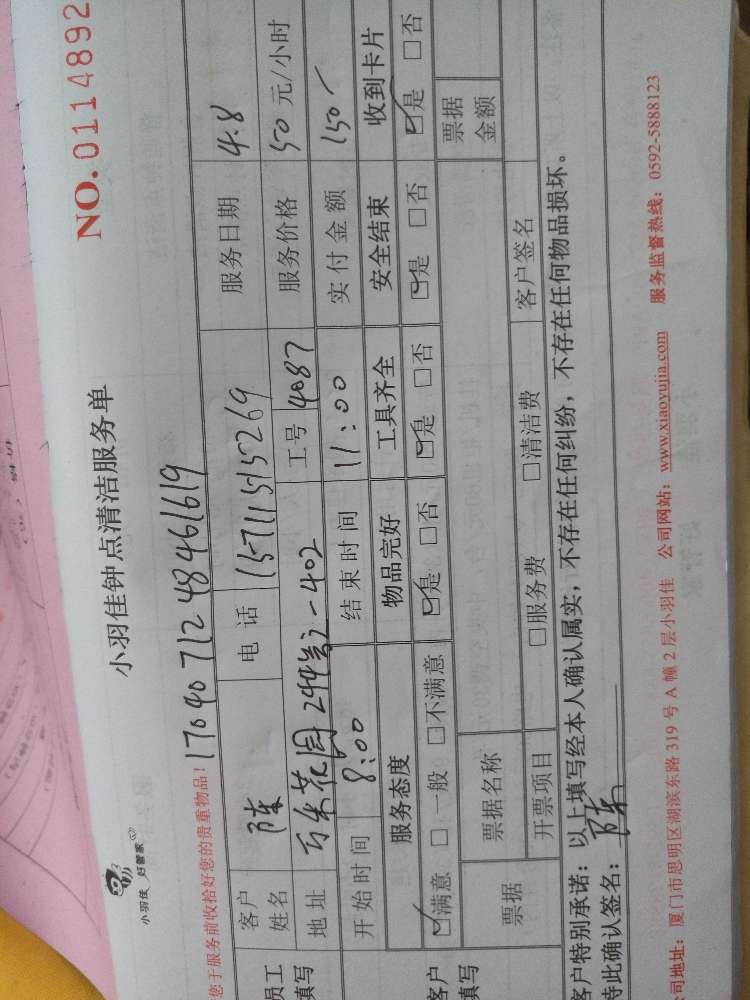 小羽佳 好管家
小羽佳钟点清洁服务单
NO. 0114892
您于服务前收拾好您的贵重物品! 17040712484616​19
员工填写
客户姓名 陈 电话 15711515269 服务日期 4.8
地址 百米花园 244号之-402 工号 4087 服务价格 50 元/小时
开始时间 8:00 结束时间 11:00 实付金额 150
客户填写
服务态度 物品完好 工具齐全 安全结束 收到卡片
☑满意 □一般 □不满意 ☑是 □否 ☑是 □否 ☑是 □否 ☑是 □否
票据 票据名称 票据金额
开票项目 □服务费 □清洁费 客户签名
客户特别承诺:以上填写经本人确认属实,不存在任何纠纷,不存在任何物品损坏。
特此确认签名: 陈
司地址:厦门市思明区湖滨东路 319 号 A 幢 2 层小羽佳 公司网站:www.xiaoyujia.com 服务监督热线:0592-5888123